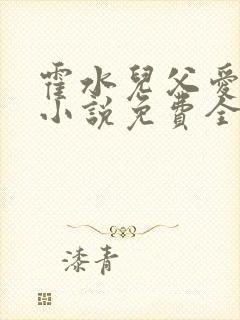 霍水兒父愛
小說免費全
漆青